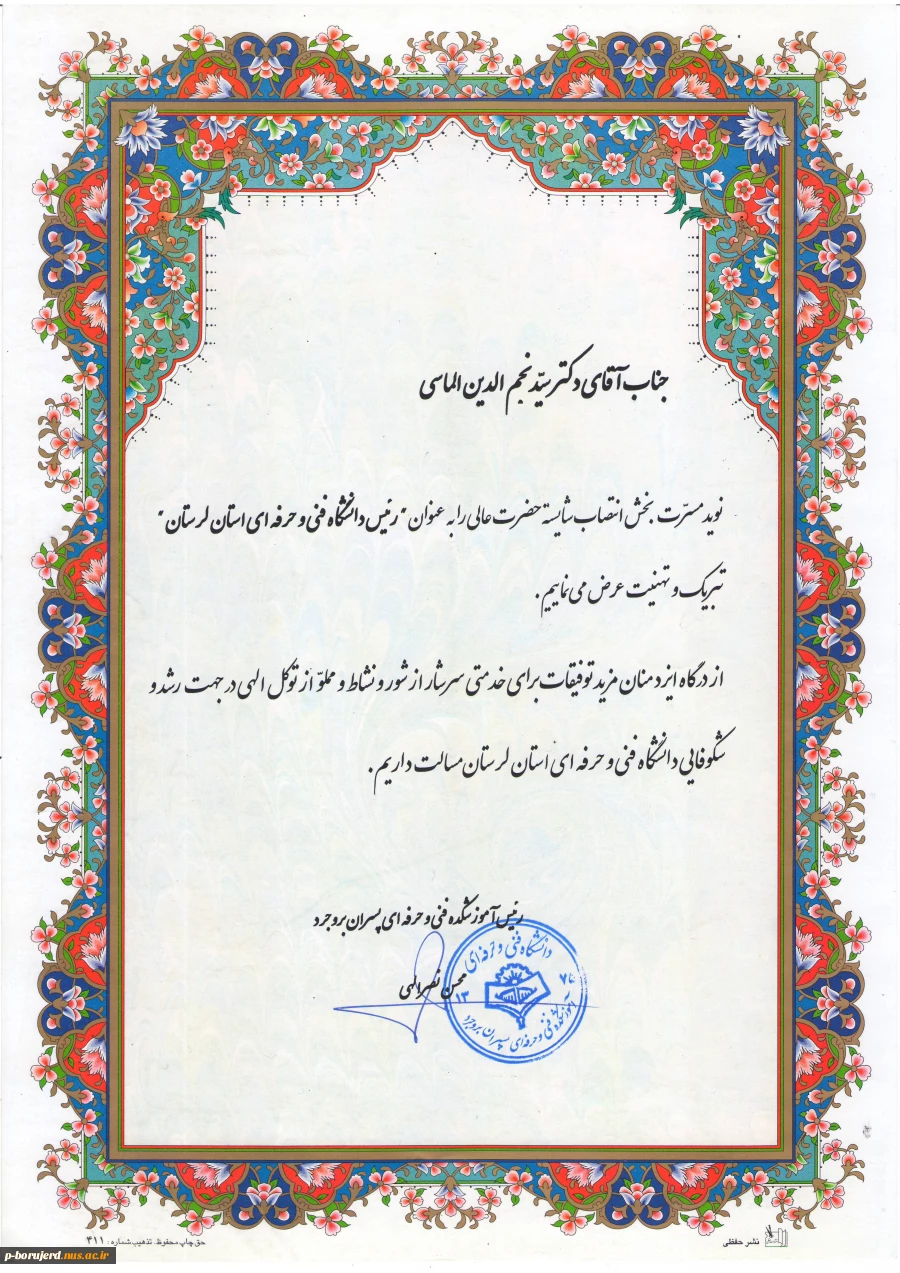 جناب آقای دکتر سیّد نجم الدین الماسی
نوید مسرّت بخش انتصاب شایسته حضرت عالی را به عنوان "رئیس دانشگاه فنی و حرفه ای استان لرستان"
تبریک و تهنیت عرض می نماییم.
از درگاه ایزد منان مزید توفیقات برای خدمتی سرشار از شور و نشاط و مملوّ از توکل الهی در جهت رشد و
شکوفایی دانشگاه فنی و حرفه ای استان لرستان مسالت داریم.
رئیس آموزشکده فنی و حرفه ای پسران بروجرد
محسن نصرالهی
دانشگاه فنی و حرفه ای
۱۳
آموزشکده فنی و حرفه ای پسران بروجرد
نشر حفظی
حق چاپ محفوظ. تذهیب شماره: ۴۱۱
p-borujerd.nus.ac.ir